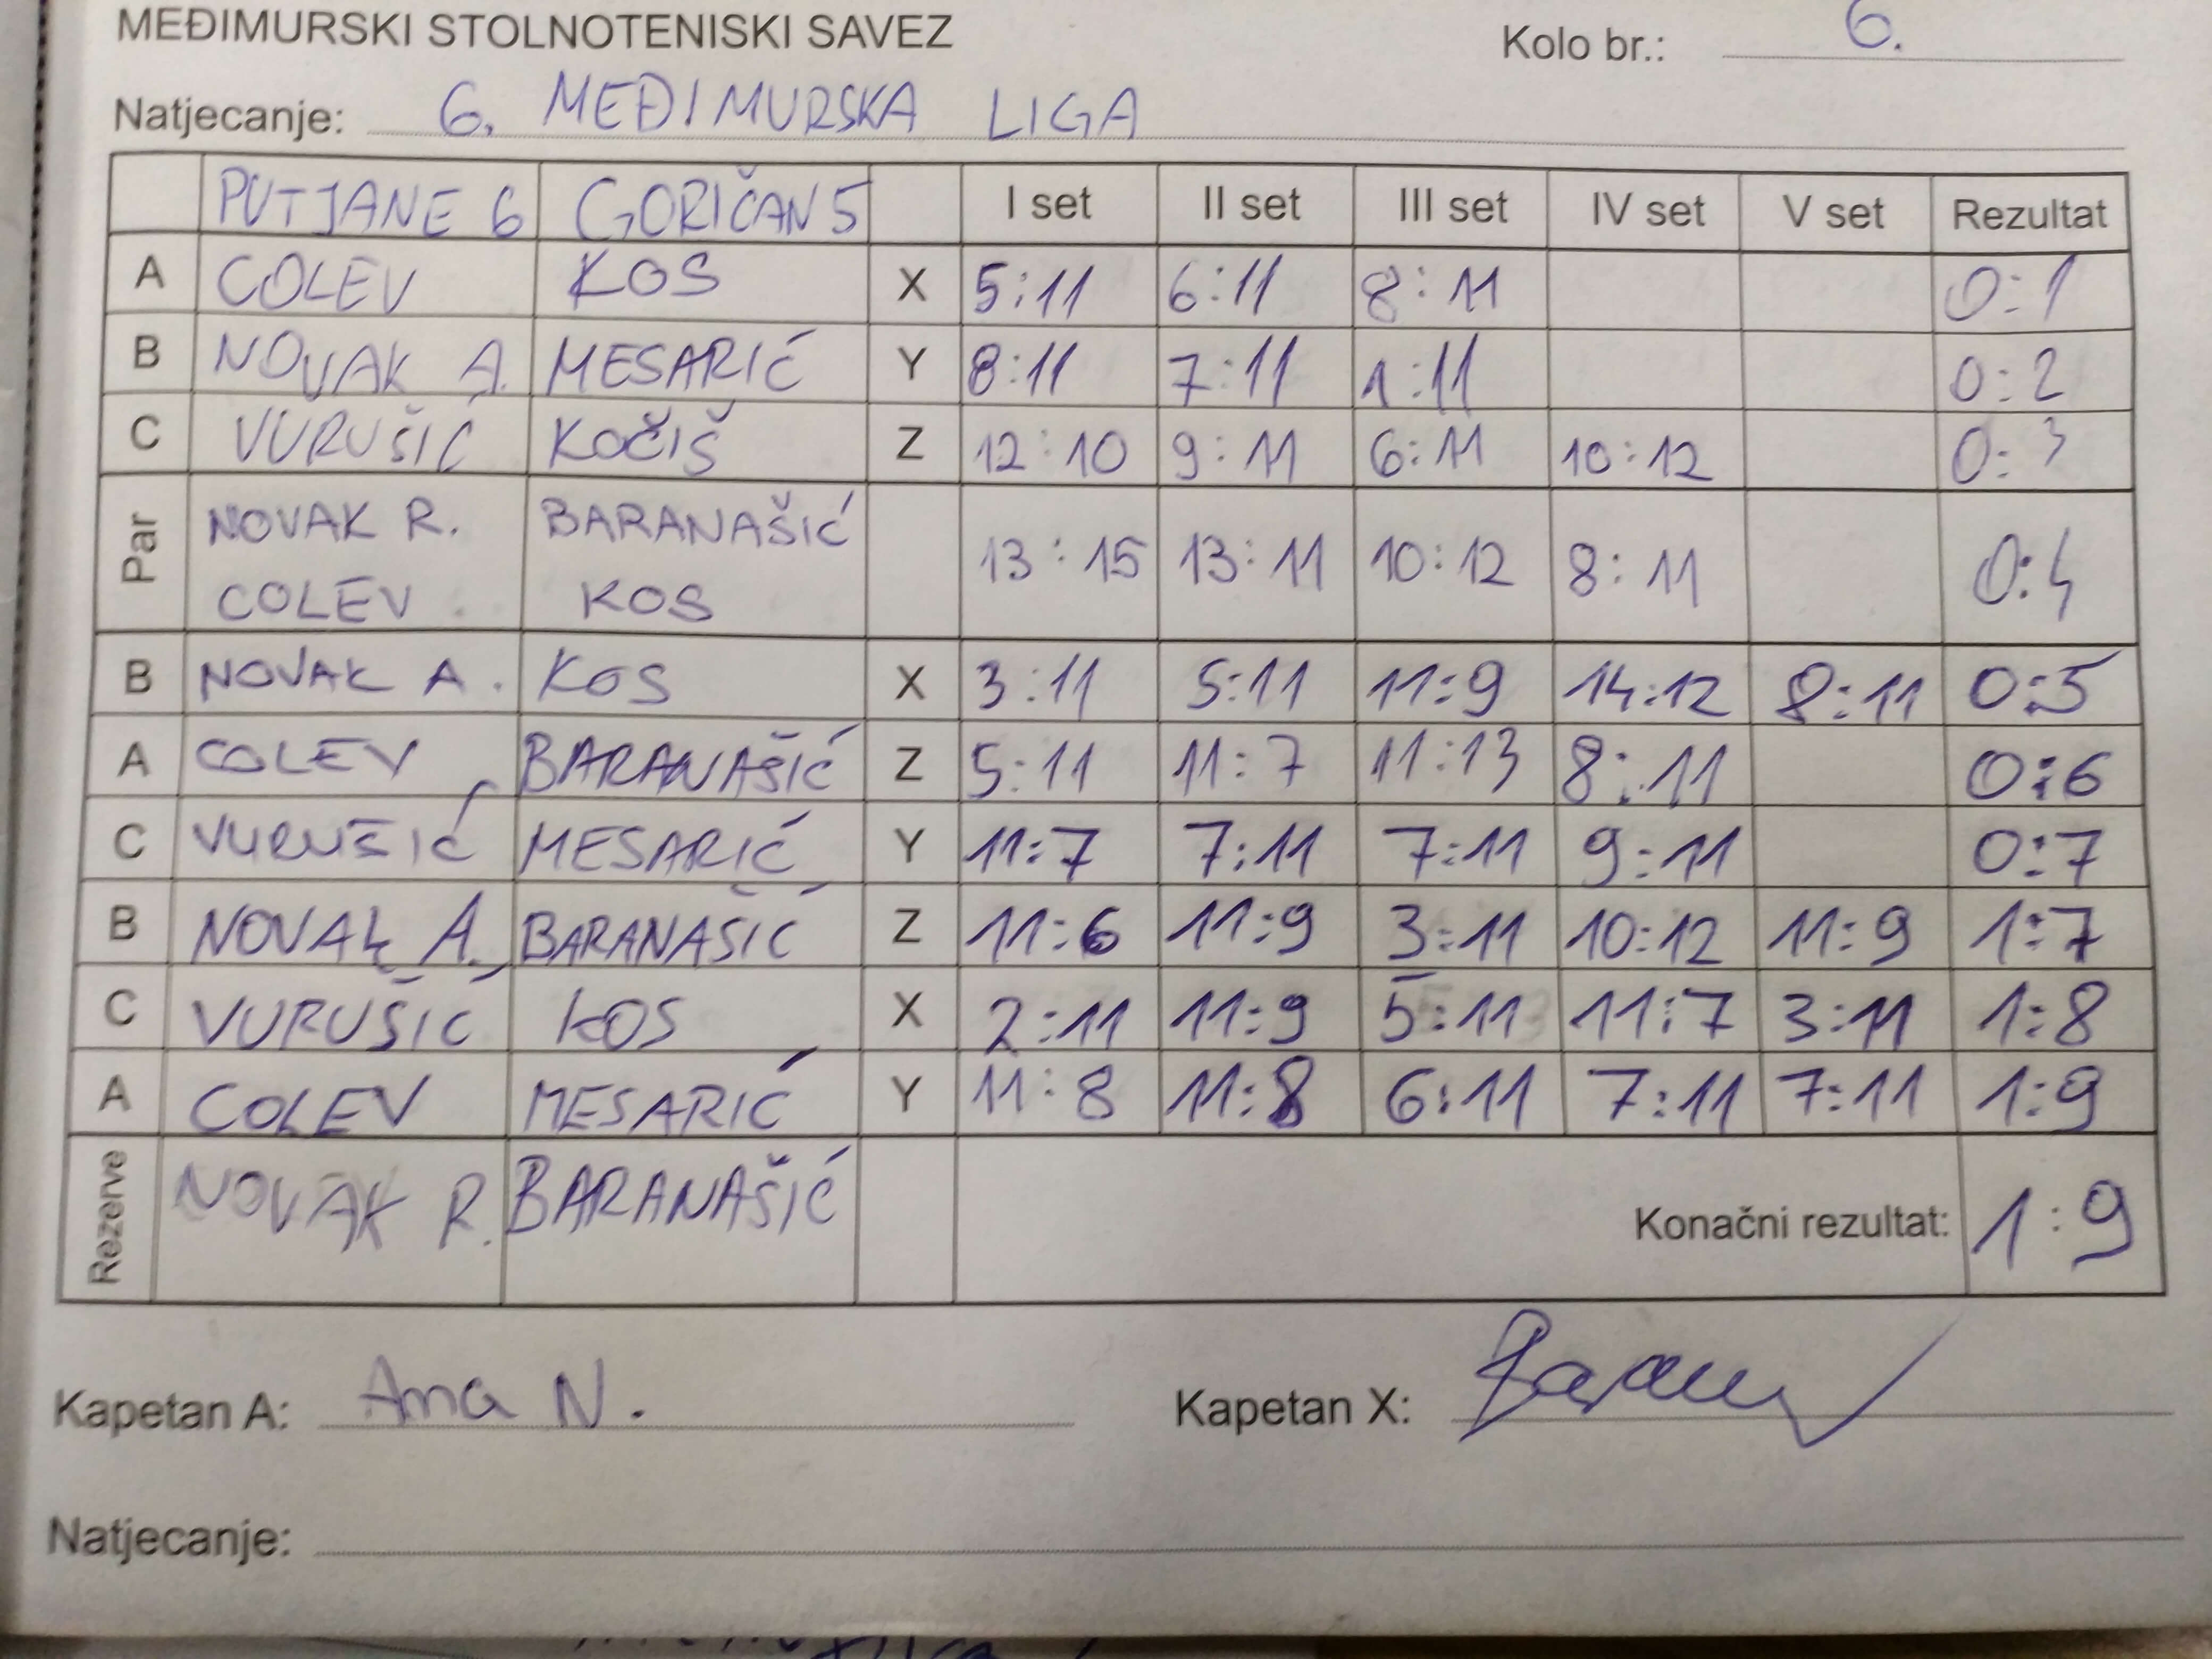 MEĐIMURSKI STOLNOTENISKI SAVEZ Kolo br.: 6.
Natjecanje: 6. MEĐIMURSKA LIGA
PUTJANE 6 GORIČAN 5 I set II set III set IV set V set Rezultat
A COLEV KOS X 5:11 6:11 8:11 0:1
B NOVAK A. MESARIĆ Y 8:11 7:11 1:11 0:2
C VURUŠIĆ KOČIŠ Z 12:10 9:11 6:11 10:12 0:3
Par NOVAK R. BARANAŠIĆ 13:15 13:11 10:12 8:11 0:4
COLEV KOS
B NOVAK A. KOS X 3:11 5:11 11:9 14:12 8:11 0:5
A COLEV BARANAŠIĆ Z 5:11 11:7 11:13 8:11 0:6
C VURUŠIĆ MESARIĆ Y 11:7 7:11 7:11 9:11 0:7
B NOVAK A. BARANAŠIĆ Z 11:6 11:9 3:11 10:12 11:9 1:7
C VURUŠIĆ KOS X 2:11 11:9 5:11 11:7 3:11 1:8
A COLEV MESARIĆ Y 11:8 11:8 6:11 7:11 7:11 1:9
Rezerve NOVAK R. BARANAŠIĆ Konačni rezultat: 1:9
Kapetan A: Ana N. Kapetan X:
Natjecanje: